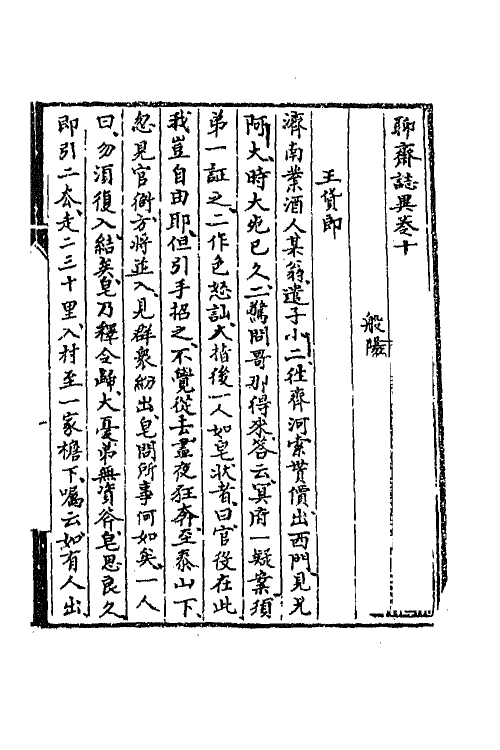 聊齋誌異卷十
般陽
王貨郎
濟南業酒人某翁遣子小二往齊河索貰價出西門見兄
阿大時大死已久二驚問哥那得來荅云冥府一疑案須
弟一証之二作色怒訕大指後一人如皂狀者曰官役在此
我豈自由耶但引手招之不覺從去盡夜狂奔至泰山下
忽見官衙方將並入見群衆紛出皂問所事何如矣一人
曰勿須復入結矣皂乃釋令歸大憂弟無資斧皂思良久
即引二去走二三十里入村至一家檐下囑云如有人出